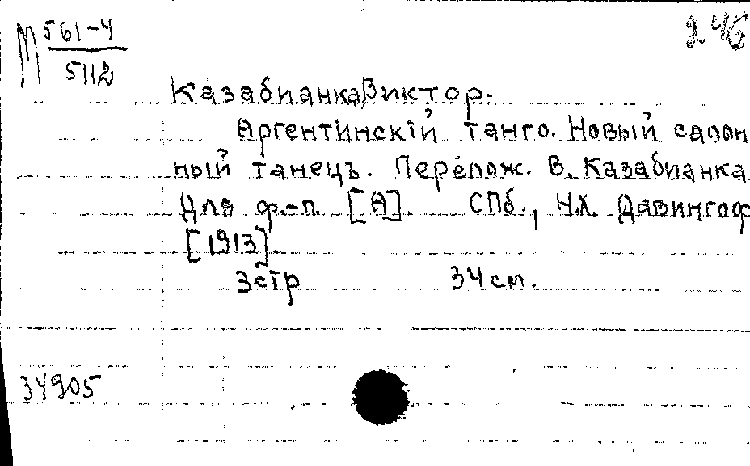 М 561-4
5112
2.46
Казабианка Виктор.
Аргентинскій танго. Новый салон
ный танецъ. Перелож. В. Казабианка
Для ф.-п. [А]. СПб., Н.Х. Давингоф
[1913]
3 стр 34 см.
34905